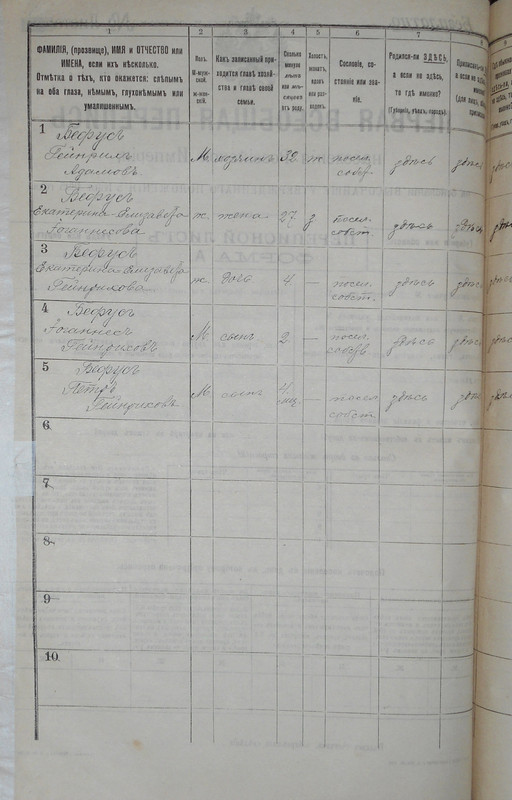 1 2 3 4 5 6 7
ФАМИЛІЯ, (прозвище), ИМЯ и ОТЧЕСТВО или
ИМЕНА, если ихъ нѣсколько.
Отмѣтка о тѣхъ, кто окажется: слѣпымъ
на оба глаза, нѣмымъ, глухонѣмымъ или
умалишеннымъ.
Полъ.
М-мужской.
ж-женскій.
Какъ записанный приходится главѣ хозяйства и главѣ своей семьи.
Сколько минуло лѣтъ или мѣсяцевъ отъ роду.
Холостъ, женатъ, вдовъ или разведенъ.
Сословіе, состояніе или званіе.
Родился-ли ЗДѢСЬ,
а если не здѣсь,
то гдѣ именно?
(Губернія, уѣздъ, городъ)
1 Бефусъ
Гейнрихъ
Адамовъ М. хозяинъ 32 ж. посел. собст. здѣсь
2 Бефусъ
Екатерина-Елизавета
Іоганнесова ж. жена 27 з посел. собст. здѣсь
3 Бефусъ
Екатерина-Елизавета
Гейнрихова ж. дочь 4 — посел. собст. здѣсь
4 Бефусъ
Іоганнесъ
Гейнриховъ М. сынъ 2 — посел. собст. здѣсь
5 Бефусъ
Петръ
Гейнриховъ М. сынъ мѣц — посел. собст. здѣсь
6
7
8
9
10